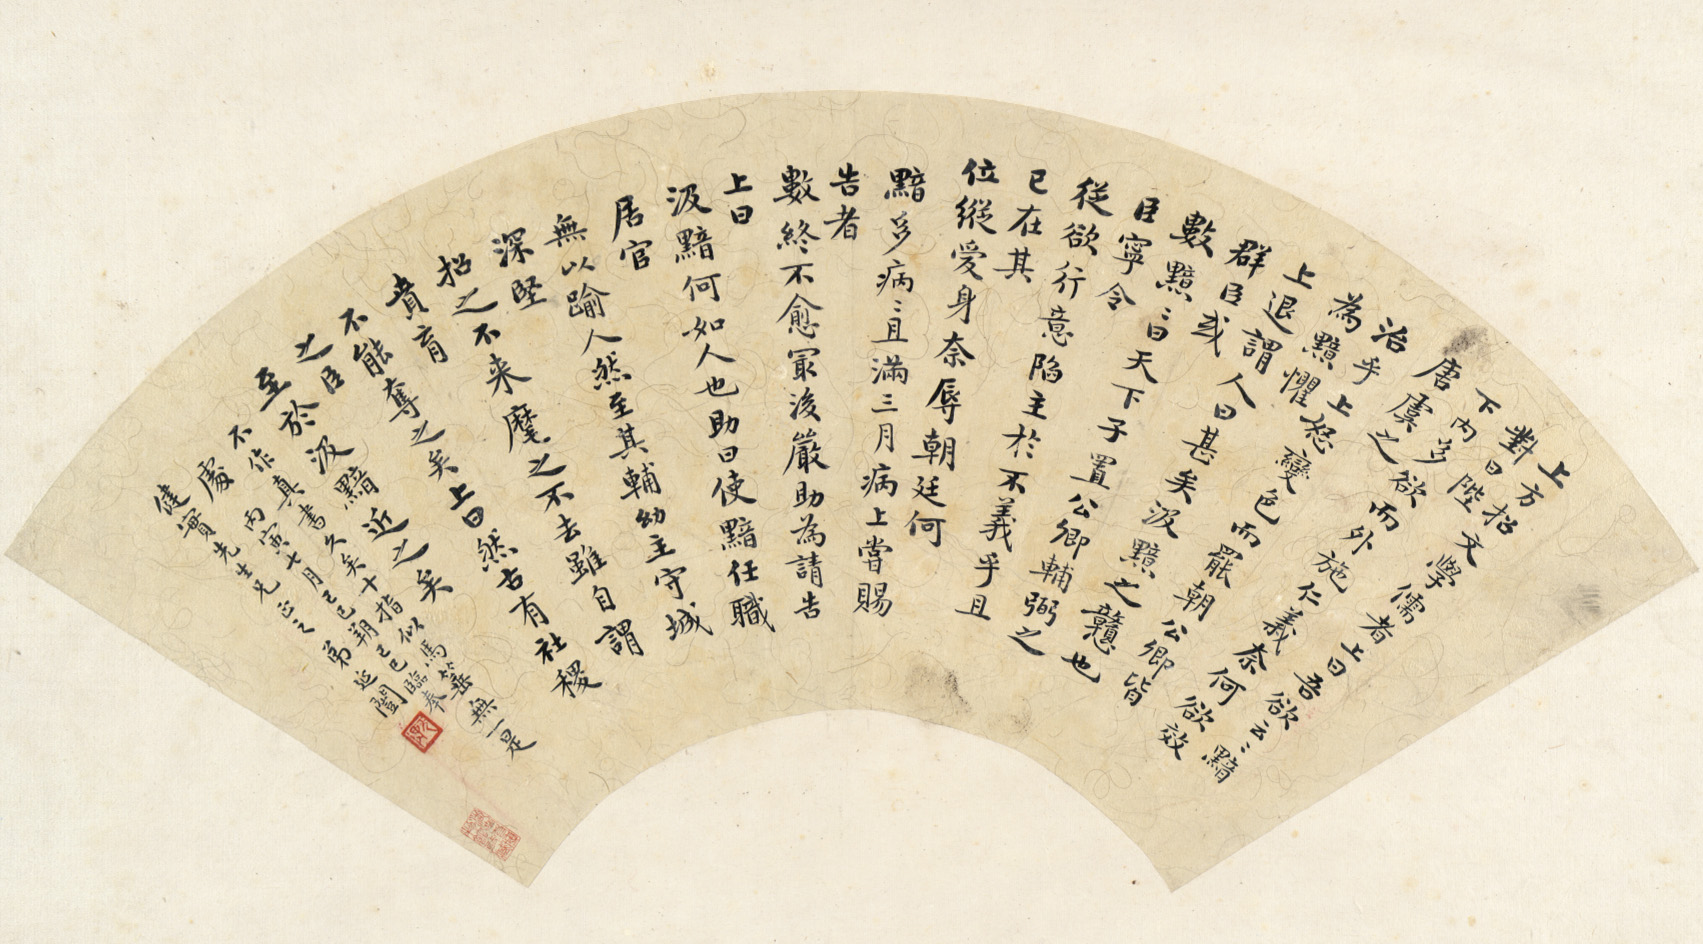 上方招文學儒者上曰吾欲云〻黯
對曰陛
下內多欲而外施仁義奈何欲效
唐虞之
治乎上怒變色而罷朝公卿皆
為黯懼
上退謂人曰甚矣汲黯之戇也
群臣或
數黯〻曰天下子置公卿輔弼之
臣寧令
從欲行意陷主於不義乎且
已在其
位縱愛身奈辱朝廷何
黯多病〻且滿三月病上嘗賜
告者
數終不愈冣後嚴助為請告
上曰
汲黯何如人也助曰使黯任職
居官
無以踰人然至其輔幼主守城
深堅
招之不来麾之不去雖自謂
賁育
不能奪之矣上曰然古有社稷
之臣
至於汲黯近之矣
不作真書久矣十指似馬箠無一是
處 丙寅七月己巳朔己巳臨奉
健實先生兄正之 弟延闓